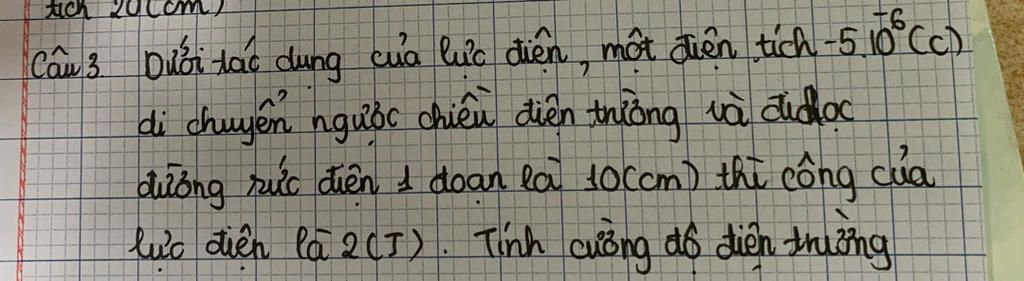 tích 20(cm)
Câu 3. Dưới tác dụng của lực điện, một điện tích -5.10⁻⁶(C)
di chuyển ngược chiều điện trường và đi dọc
đường sức điện 1 đoạn là 10(cm) thì công của
lực điện là 2(J). Tính cường độ điện trường